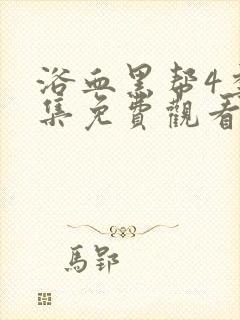 浴血黑帮4季
集免費觀看
馬郢